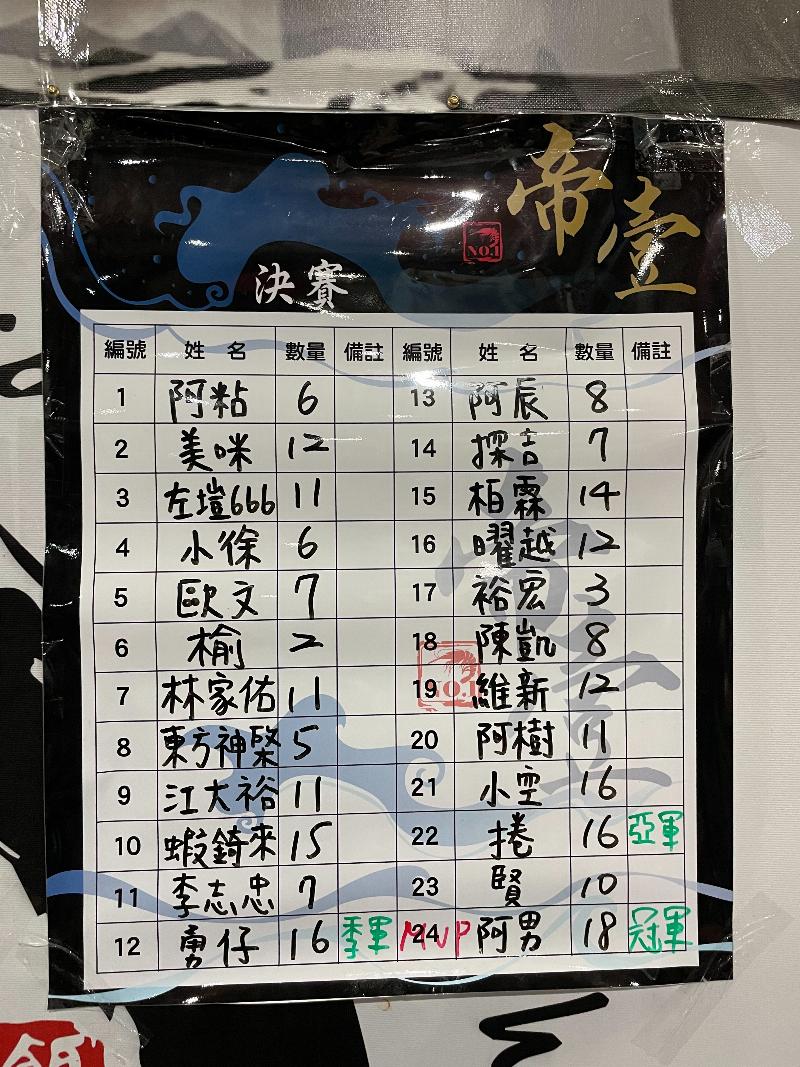 帝壹
NO.1
決賽
編號 姓名 數量 備註 編號 姓名 數量 備註
1 阿粘 6 13 阿辰 8
2 美咪 12 14 探吉 7
3 左塏666 11 15 柏霖 14
4 小徐 6 16 曜越 12
5 歐文 7 17 裕宏 3
6 榆 2 18 陳凱 8
7 林家佑 11 19 維新 12
8 東方神 5 20 阿樹 11
9 江大裕 11 21 小空 16
10 蝦錡來 15 22 捲 16 亞軍
11 李志忠 7 23 賢 10
12 勇仔 16 季軍 MVP 24 阿男 18 冠軍